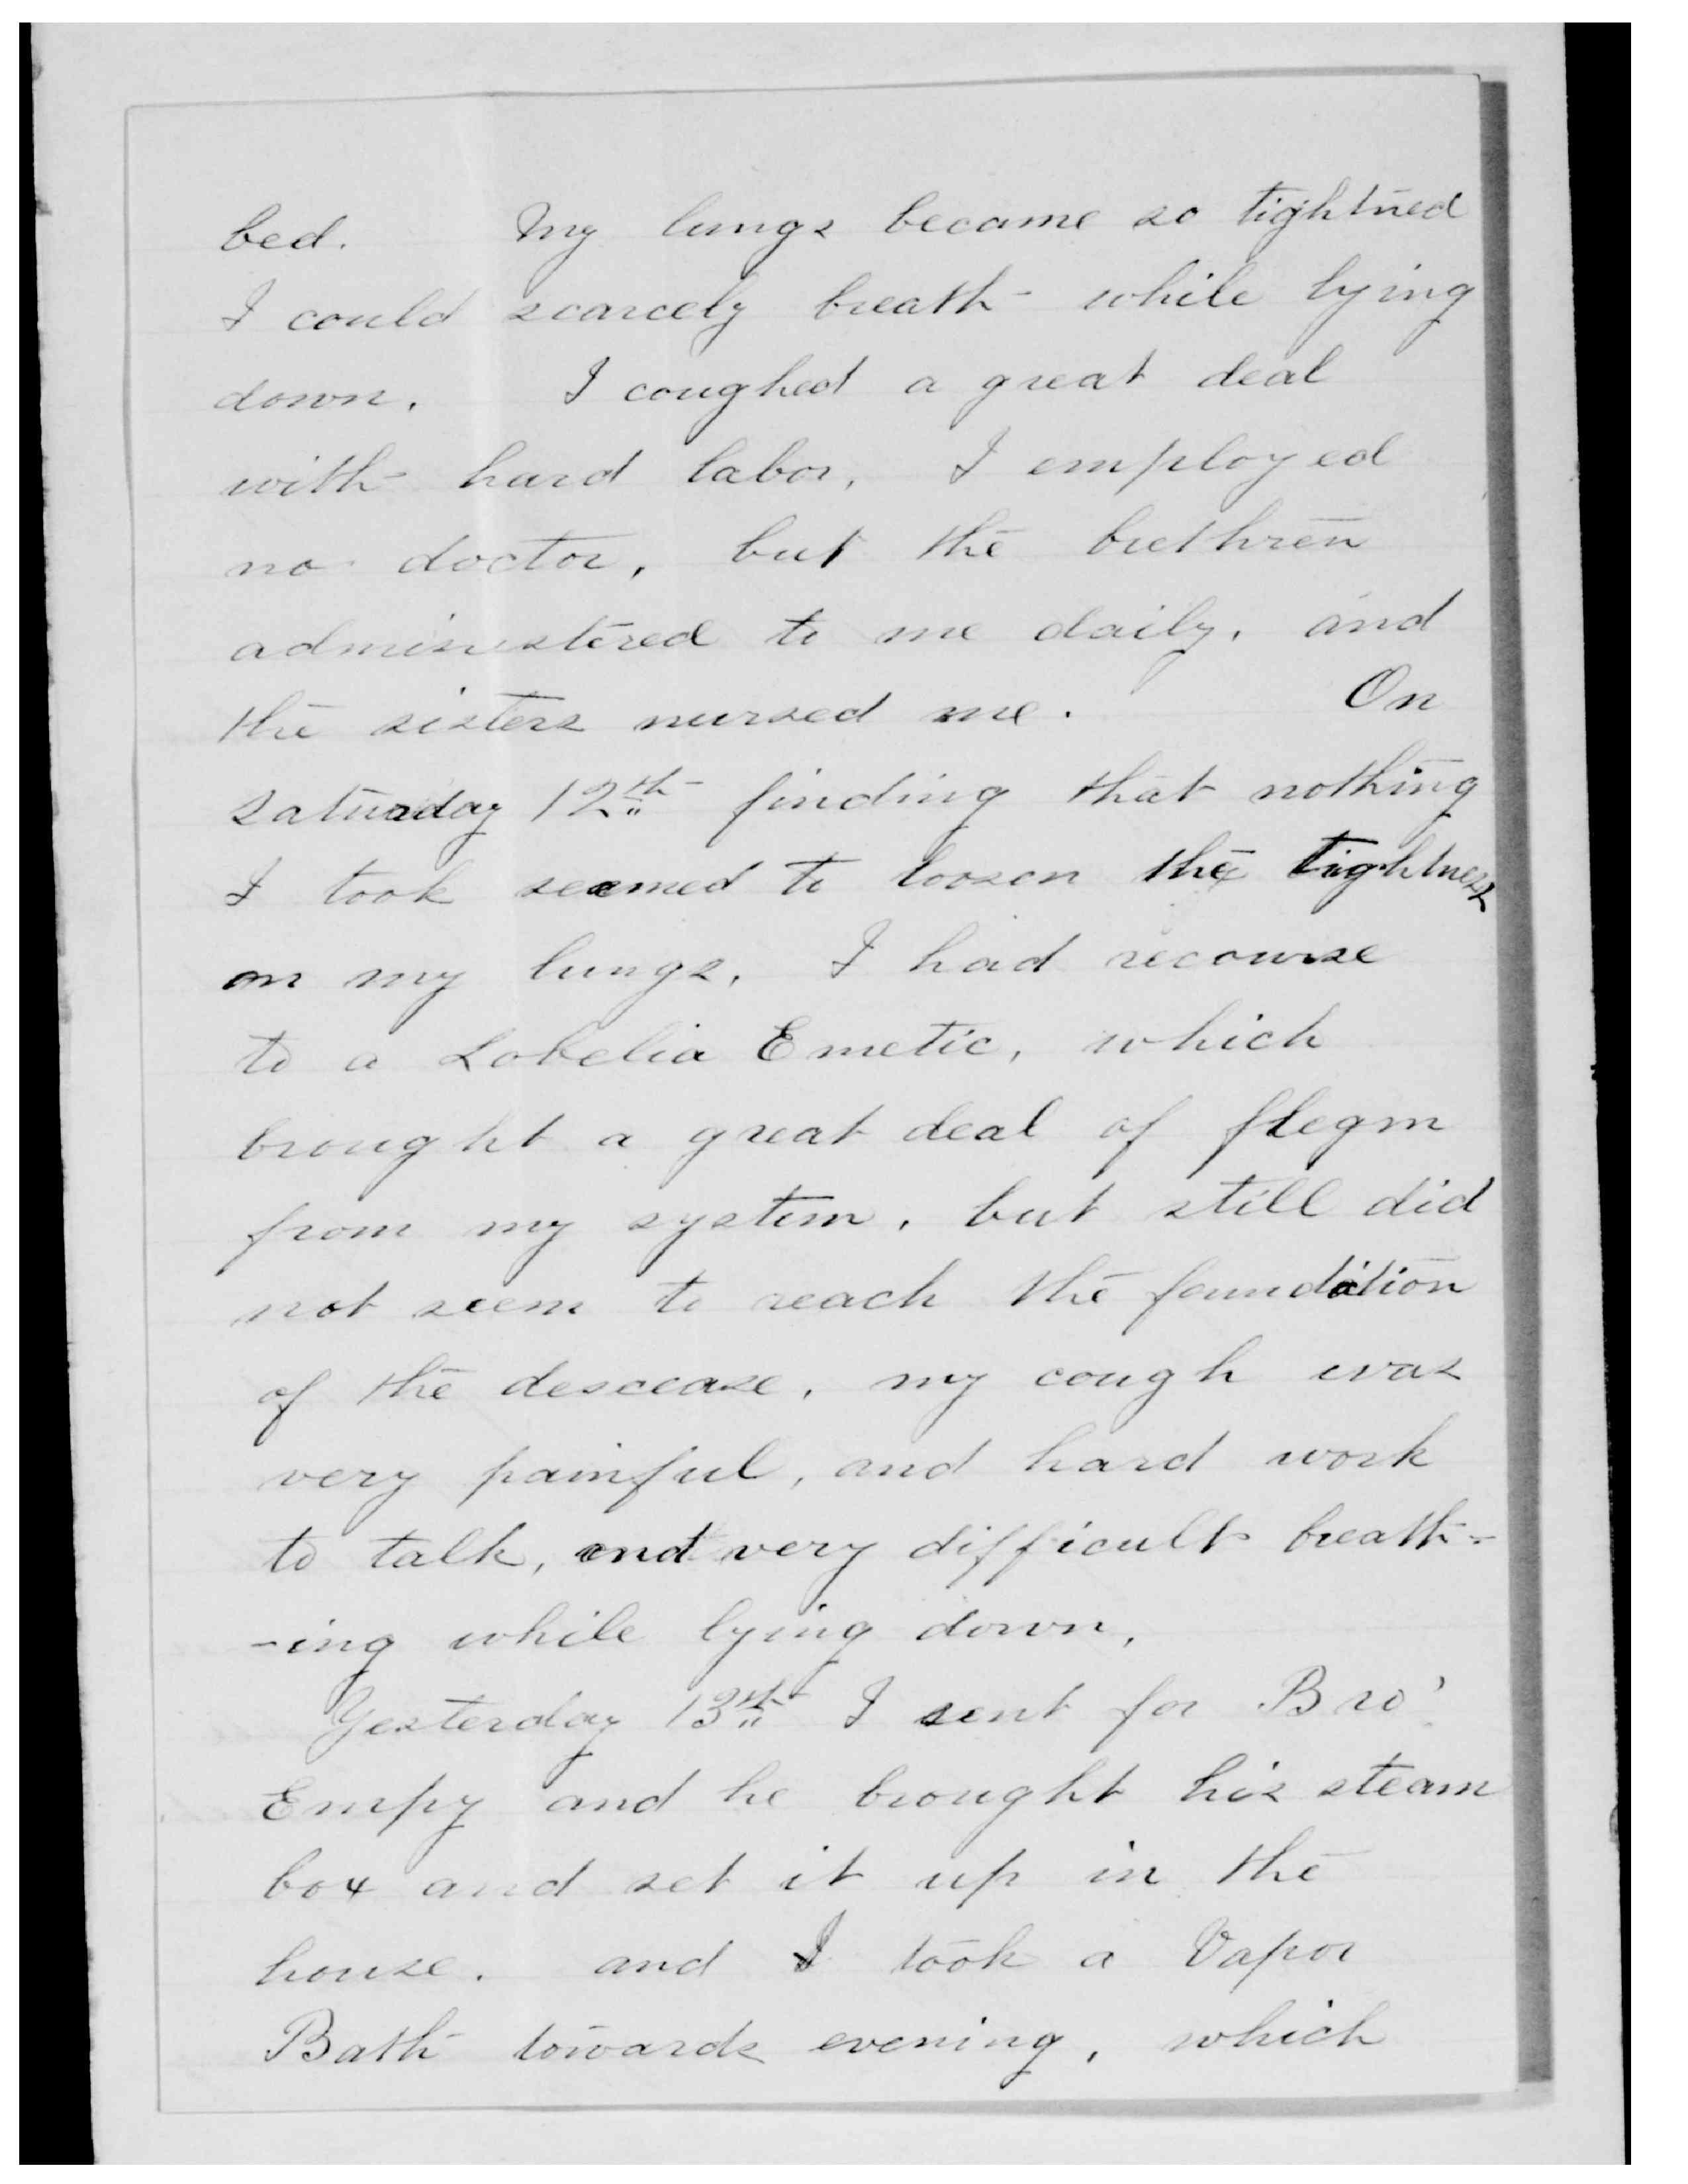 bed. My lungs became so tightned
I could scarcely breath while lying
down. I coughed a great deal
with hard labor, I employed
no doctor, but the brethren
administered to me daily, and
the sisters nursed me. On
Saturday 12th finding that nothing
I took seemed to loosen the tightness
on my lungs, I had recourse
to a Lobelia Emetic, which
brought a great deal of flegm
from my system, but still did
not seem to reach the foundation
of the descease, my cough was
very painful, and hard work
to talk, and very difficult breath-
-ing while lying down.
Yesterday 13th I sent for Bro'
Empy and he brought his steam
box and set it up in the
house. and I took a Vapor
Bath towards evening, which